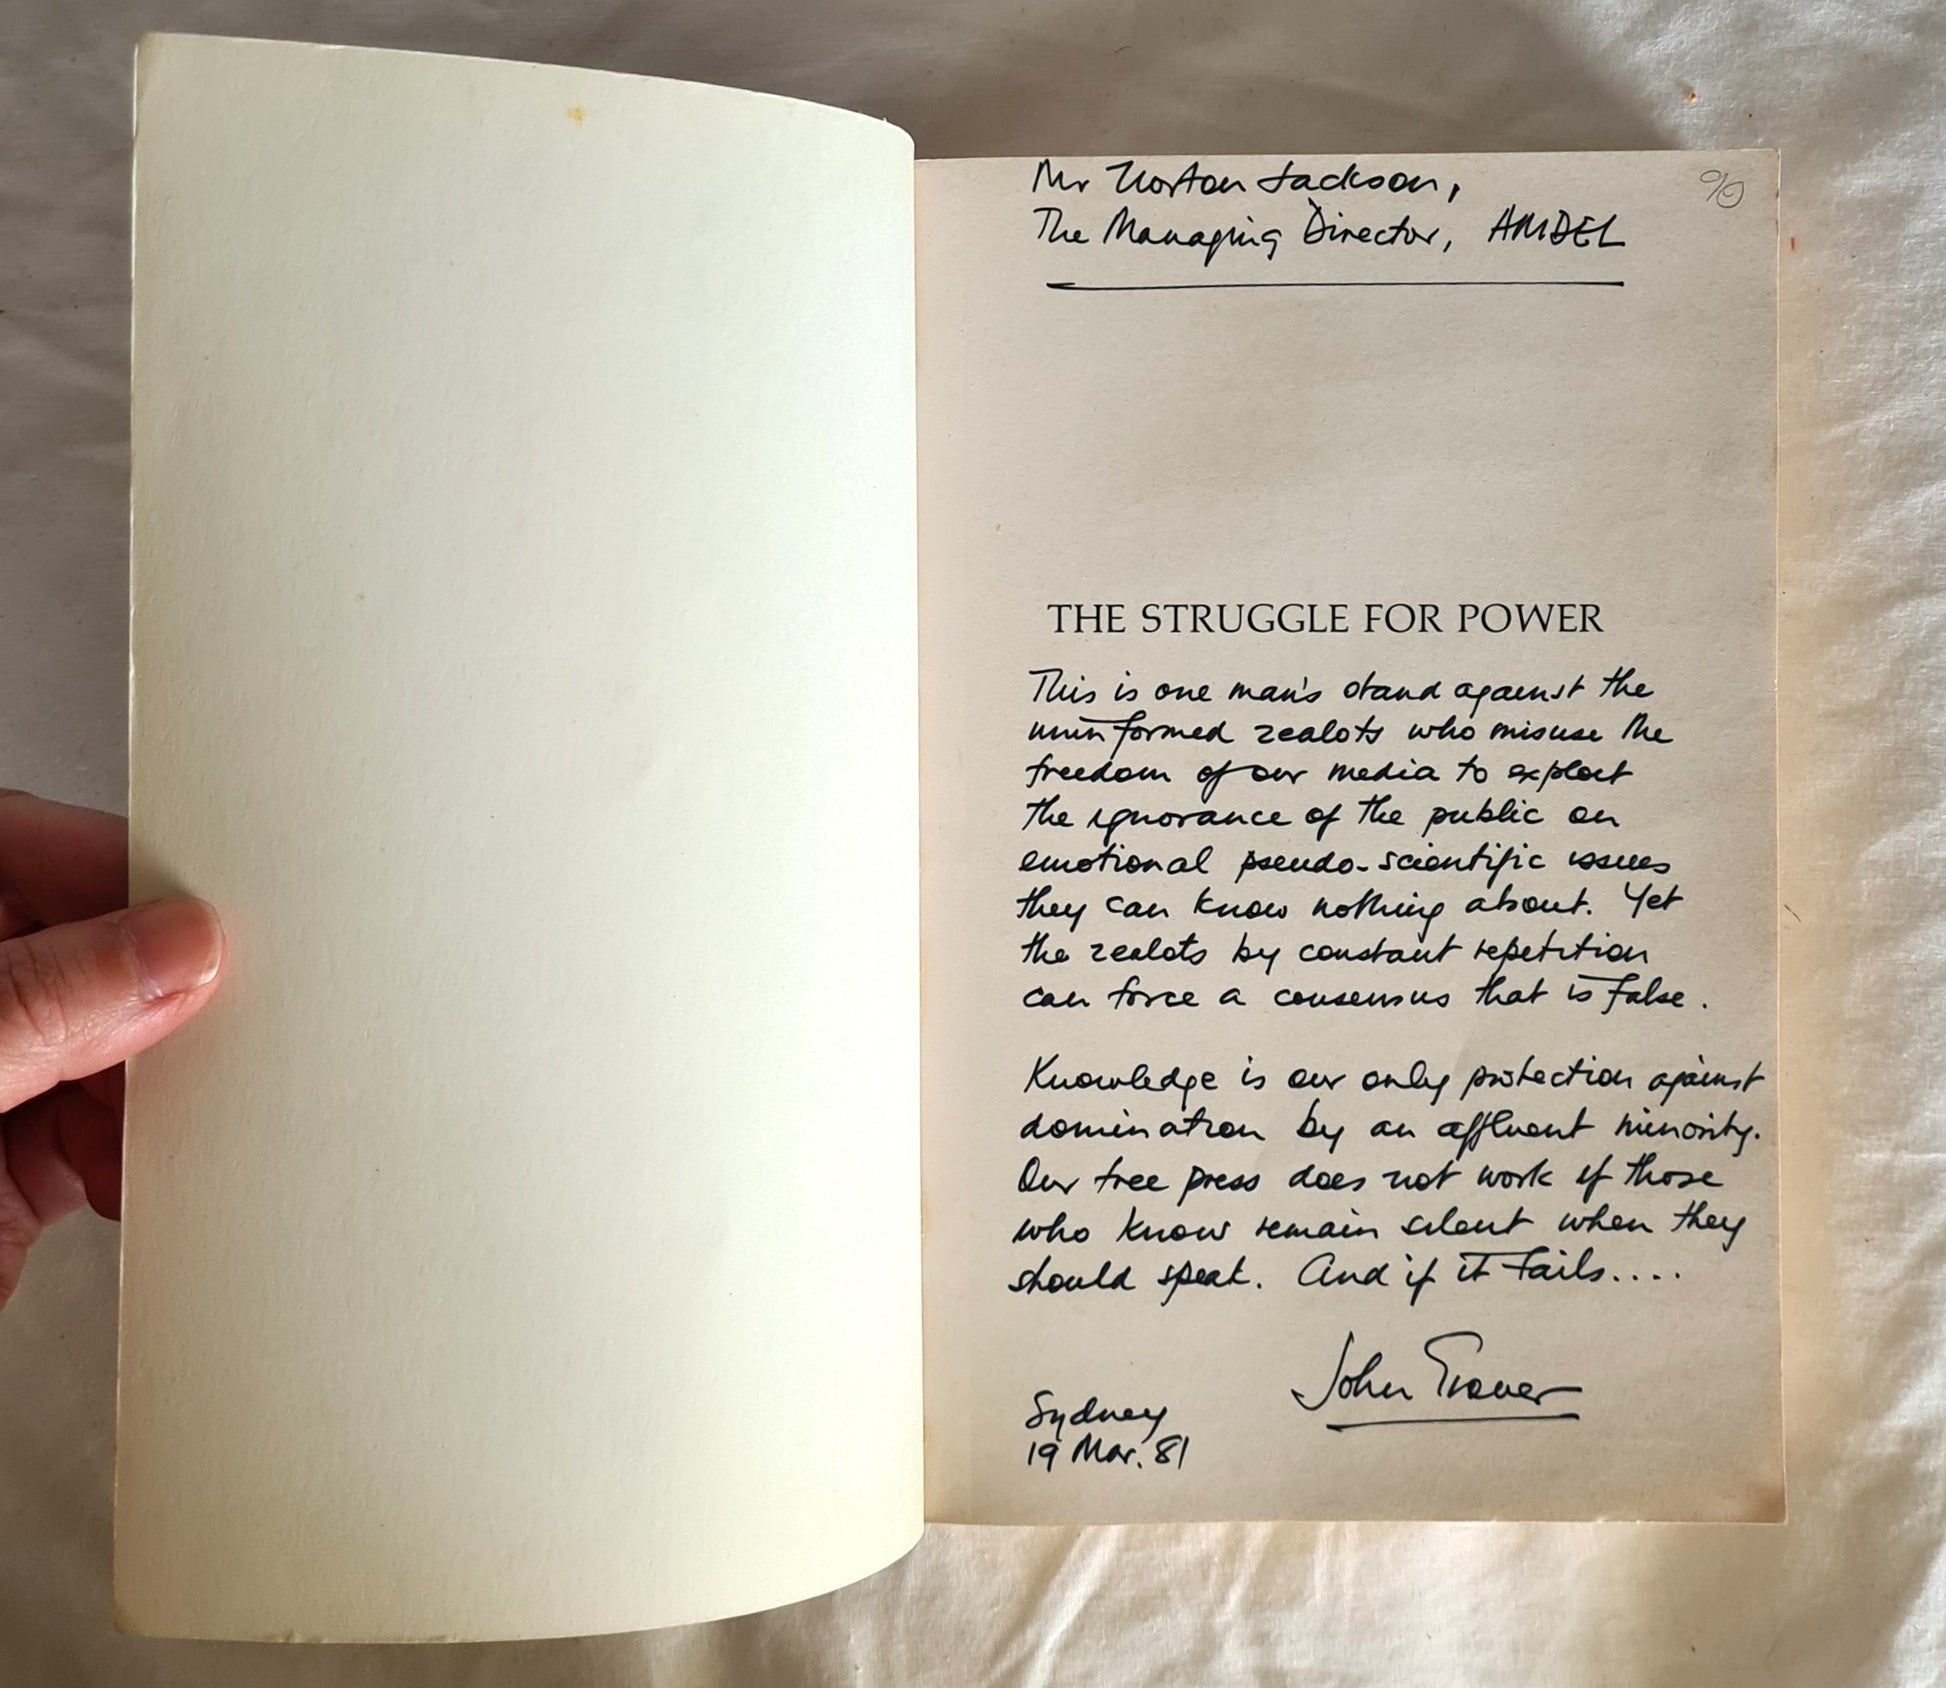 Mr Norton Jackson,
The Managing Director, AMDEL
THE STRUGGLE FOR POWER
This is one man's stand against the
uninformed zealots who misuse the
freedom of our media to exploit
the ignorance of the public on
emotional pseudo-scientific issues
they can know nothing about. Yet
the zealots by constant repetition
can force a consensus that is false.
Knowledge is our only protection against
domination by an affluent minority.
Our free press does not work if those
who know remain silent when they
should speak. And if it fails....
John Grover
Sydney
19 Mar. 81